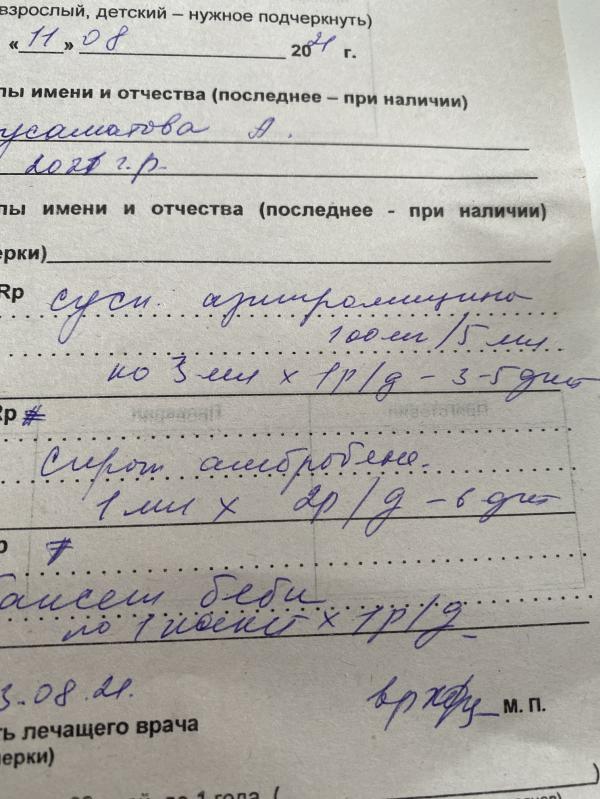 взрослый, детский – нужное подчеркнуть)
«11» 08 2021 г.
лы имени и отчества (последнее – при наличии)
усаматова А.
2021 г.р.
лы имени и отчества (последнее - при наличии)
ерки)
Rp сусп. азитромицина
100мг/5 мл
по 3 мл х 1р/д - 3-5 дней
Rp
Сироп амбробене.
1 мл х 2р/д - 6 дней
р
беби
по 1 пакет х 1р/д
3.08.21.
М. П.
ть лечащего врача
черки)
до 1 года (